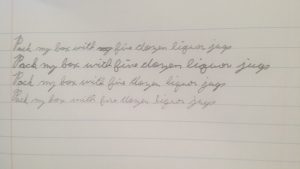 Pack my box with my five dozen liquor jugs
Pack my box with five dozen liquor jugs
Pack my box with five dozen liquor jugs
Pack my box with five dozen liquor jugs